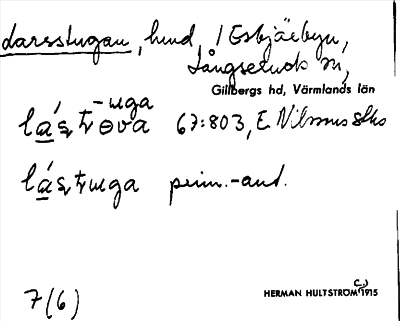 Larsstugan, hmd, i Esbjäebyn,
Långseruds sn,
Gillbergs hd, Värmlands län
-uga
lá̱ʂtɵva 67:803, E Nilssons slks
lá̱ʂtuga prim.-and.
HERMAN HULTSTRÖM C:) 1915
7(6)